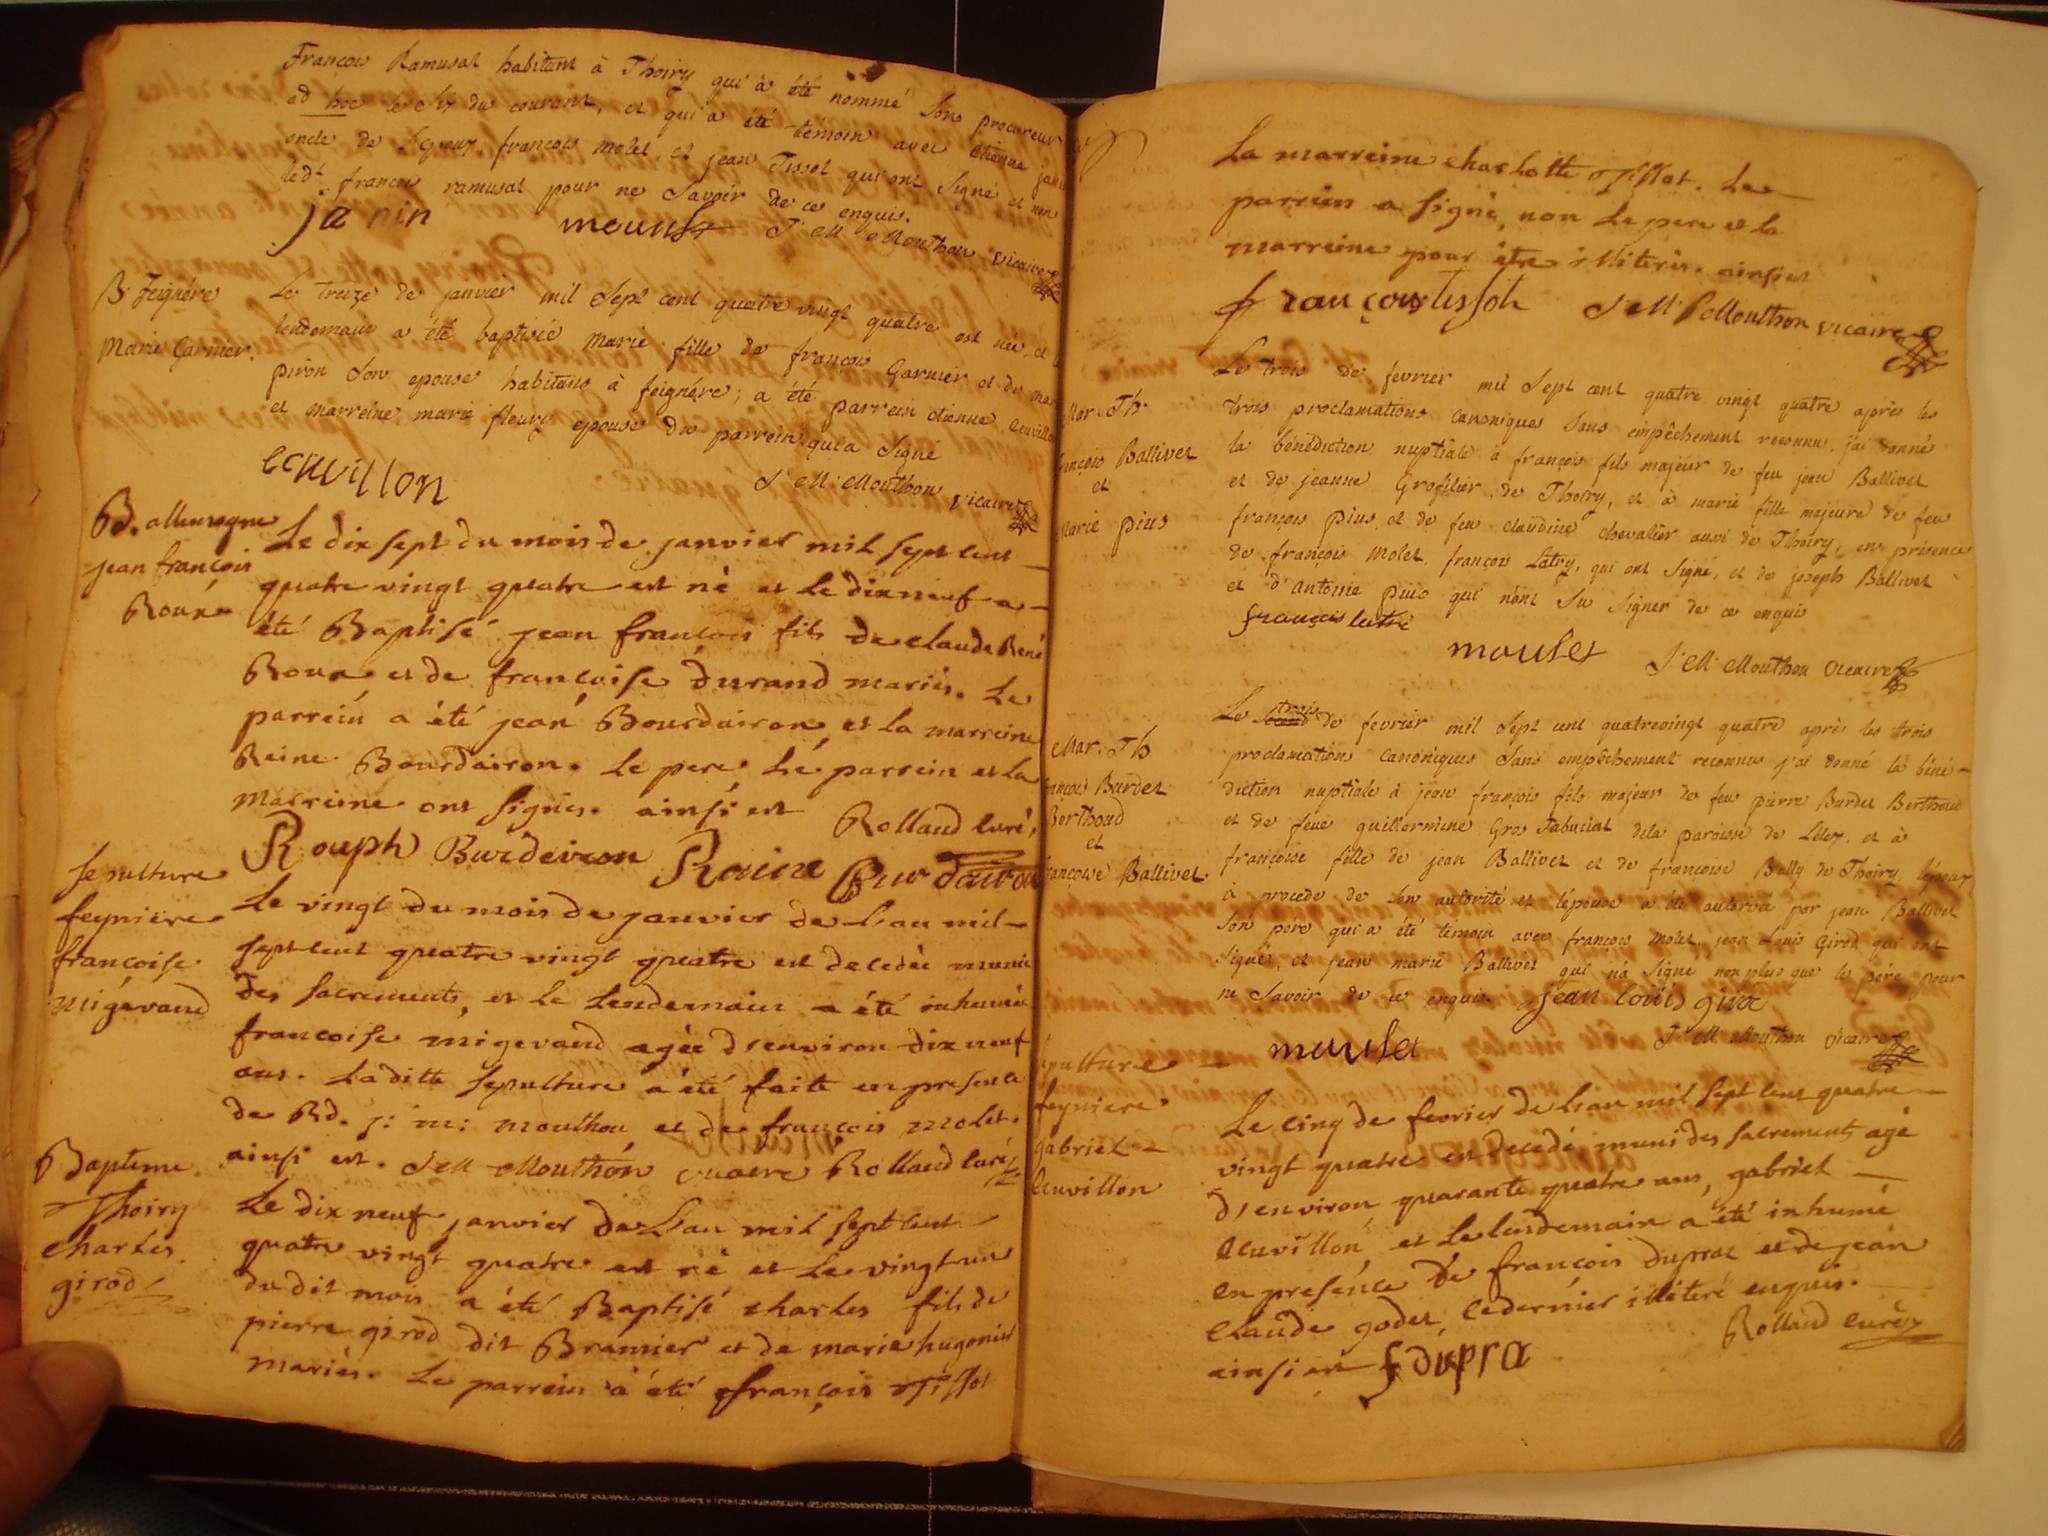 François Ramusat habitant à Thoiry qui a été nommé Sons procureur
ad hoc le six du courant, et qui a été témoin avec etienne
oncle de l'epoux françois molet, et jean Tissot qui ont Signé et non
ledt. françois ramusat pour ne Savoir de ce enquis.
janin moulet J: M: Mouthon vicaire
B. feigniére
Marie Garnier.
Le treize de janvier mil Sept cent quatre vingt quatre est née, et
lendemain a été baptisée marie fille de françois Garnier et de
piron Son epouse habitans à feigniére; a été parrein etienne
et marreine marie fleury epouse du parrein qui a Signé
ecuvillon J: M: Mouthon vicaire
B. allemogne
jean françois
Roux
Le dix sept du mois de janvier mil sept cent
quatre vingt quatre est né et le dix neuf a
été Baptisé jean françois fils de claude René
Roux et de françoise durand mariés. Le
parrein a été jean Bourdairon et la marreine
Reine Bourdairon. Le pere Le parrein et la
marreine ont signés. ainsi est Rolland curé,
Rouph Burdeiron Raine Burdairon
sepulture
feyniere
françoise
migevand
Le vingt du mois de janvier de L'an mil
sept cent quatre vingt quatre est decedée munie
des sacrements, et le Lendemain a été inhumée
françoise migevand agée d'environ dix neuf
ans. Ladite sepulture a été faite en presence
de Rd. j: m: mouthon et de françois molet.
ainsi est. J: M: Mouthon vicaire Rolland curé
Bapteme
Thoiry
charles
girod
Le dix neuf janvier de L'an mil sept cent
quatre vingt quatre est né et Le vingt un
du dit mois a été Baptisé charles fils de
pierre girod dit Brannier et de marie hugonier
mariés. Le parrein a été françois Tissot
La marreine charlotte Tissot. Le
parrein a signé, non Le pere et la
marreine pour être illiterés. ainsi est
françois tissot J: M: Mouthon vicaire
Mar. Th.
françois Ballivet
et
Marie pius
Le trois de fevrier mil Sept cent quatre vingt quatre après les
trois proclamations canoniques Sans empêchement reconnu j'ai donné
la bénédiction nuptiale à françois fils majeur de feu jean Ballivet
et de jeanne Grosfilier, de Thoiry, et à marie fille majeure de feu
françois pius, et de feu claudine chevalier aussi de Thoiry, en présence
de françois molet, françois Latry, qui ont Signé, et de joseph Ballivet
et d'Antoine pius qui n'ont Su Signer de ce enquis
françois lattré
moulet J: M: Mouthon vicaire
Mar. Th
françois Burdet
Berthoud
et
françoise Ballivet
Le trois de fevrier mil Sept cent quatrevingt quatre après les trois
proclamations canoniques Sans empêchement reconnu j'ai donné la béné-
diction nuptiale à jean françois fils majeur de feu pierre Burdet Berthoud
et de feue guillermine Gros Tabuciat dela paroisse de Lélex et à
françoise fille de jean Ballivet et de françoise Bally de Thoiry, l'époux
à procede de Son autorité et l'épouse a été autorisée par jean Ballivet
Son pére qui a été témoin avec françois Molet, jean Louis Girod qui ont
Signés, et jean marie Ballivet qui n'a Signé non plus que le pére pour
ne Savoir de ce enquis. jean louis girod
moulet J: M: Mouthon vicaire
sepulture
feyniere
gabriel
Ecuvillon
Le cinq de fevrier de L'an mil sept cent quatre
vingt quatre est decedé muni des sacrements agé
d'environ quarante quatre ans, gabriel
Ecuvillon et Le lendemain a été inhumé
en presence de françois duprat et de jean
Claude godet, ce dernier illiteré enquis.
ainsi est f dupra Rolland curé